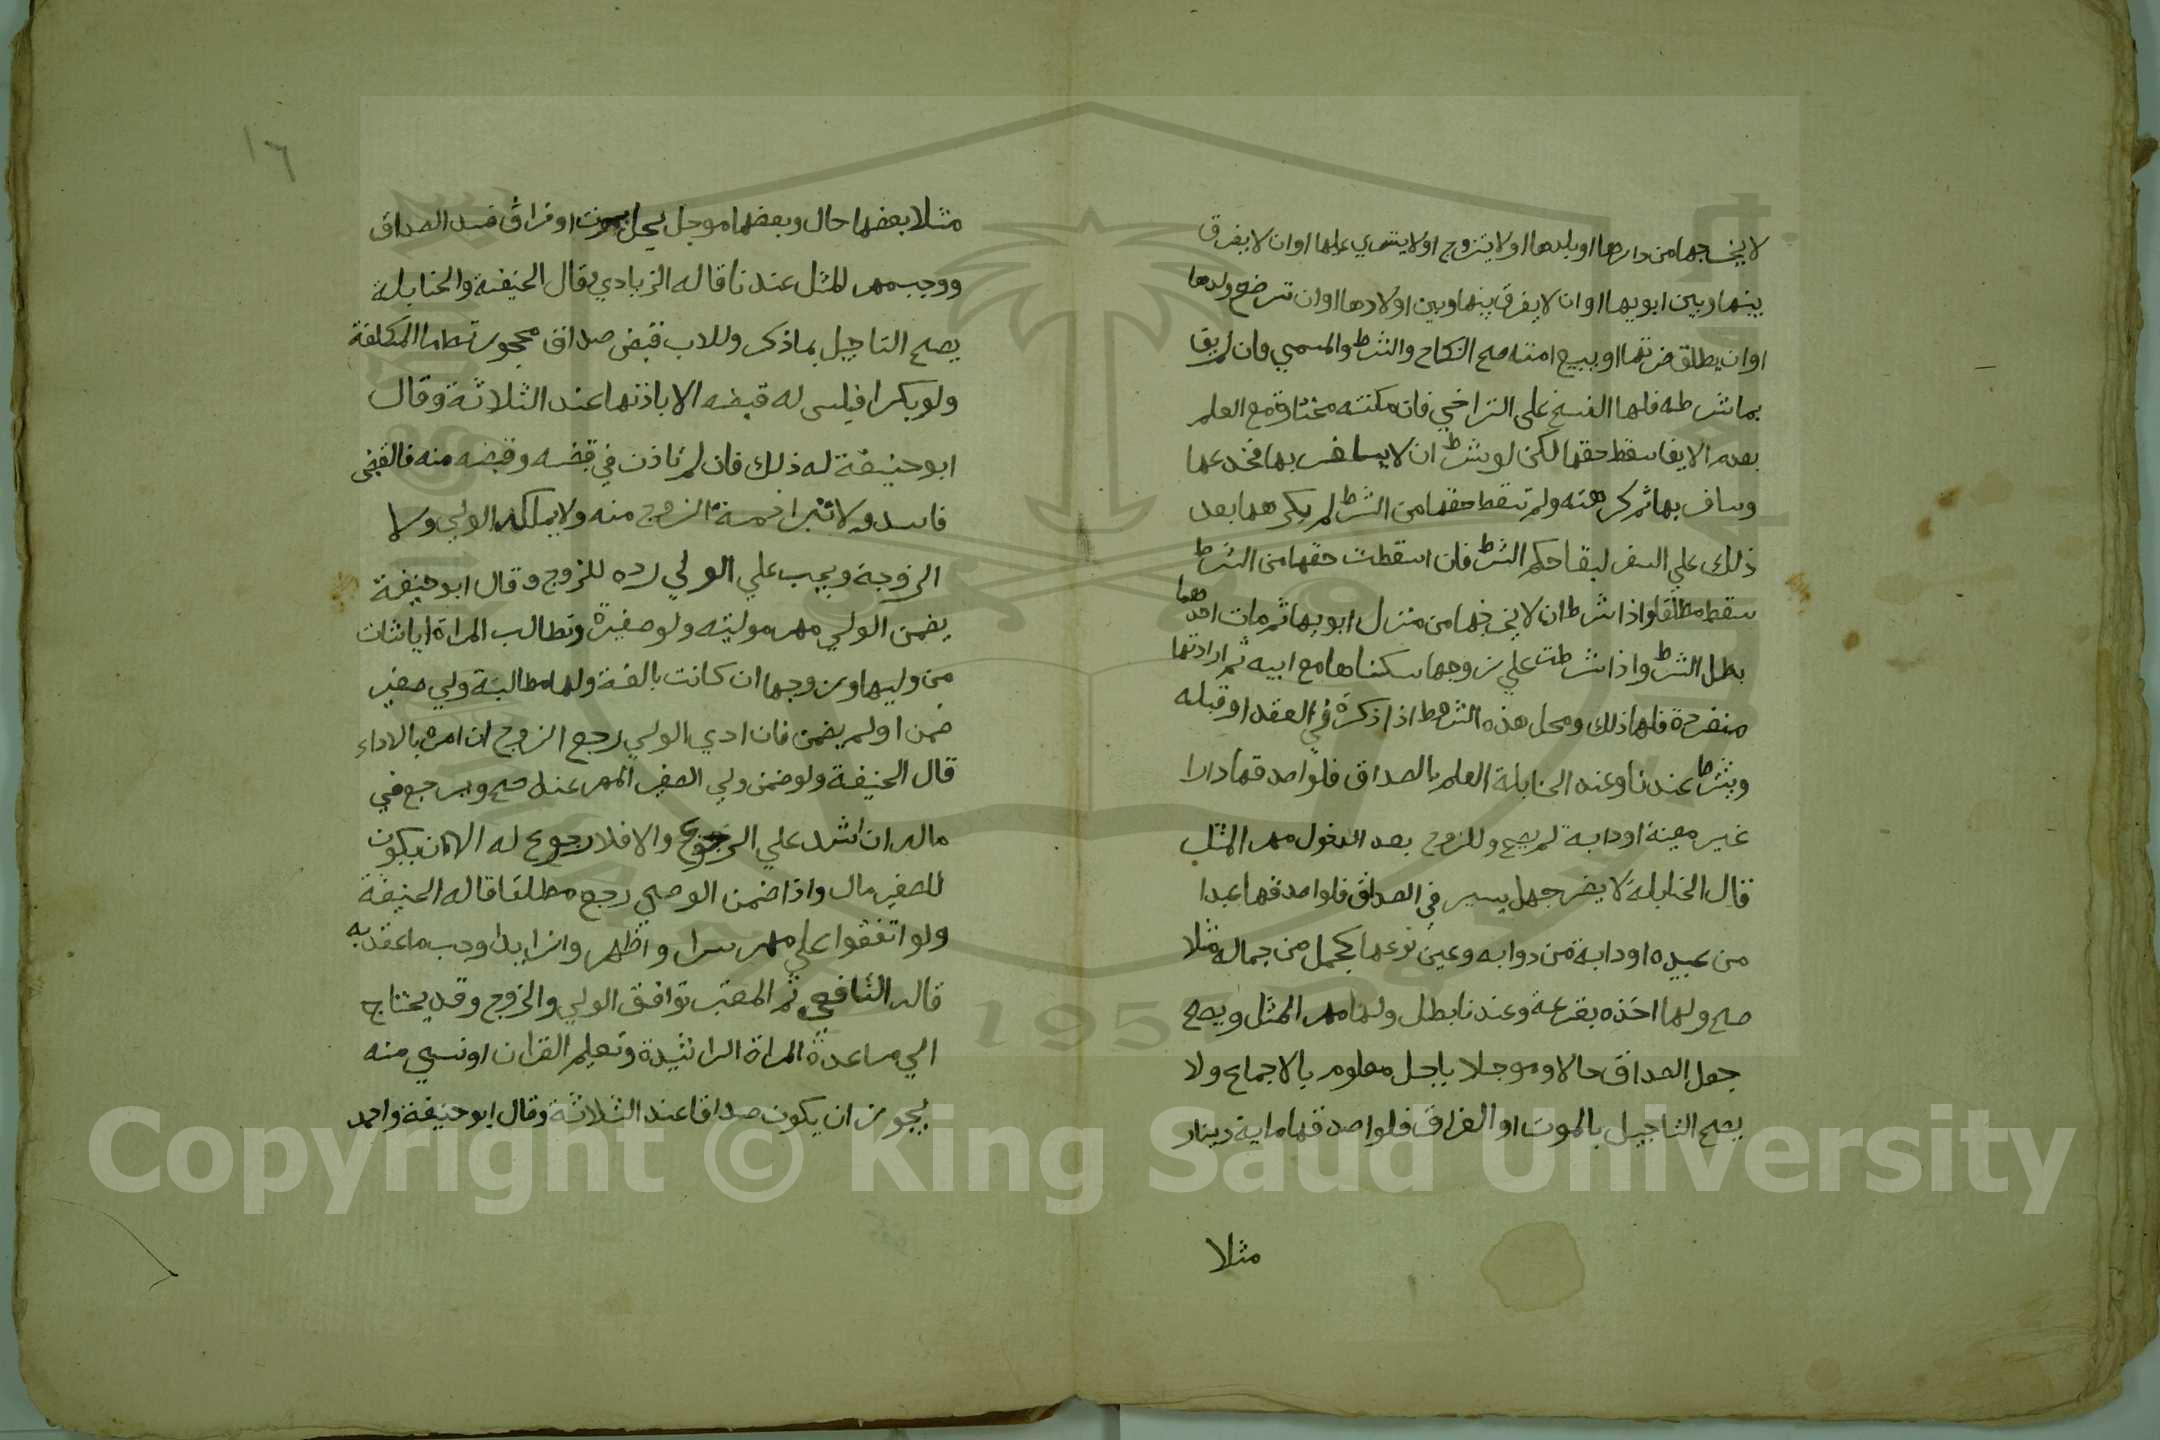 لا يخرجها من دارها او بلدها او لا يتزوج او لا يتسري عليها او ان لا يفرق
بينها وبين ابويها او ان لا يفرق بينها وبين اولادها او ان ترضع ولدها
او ان يطلق ضرتها او يبيع امته صح النكاح والشرط والمسمي فان لم يف
بما شرطه فلها الفسخ على التراخي فان مكنته مختارة مع العلم
بعدم الايفا سقط حقها لكن لو شرط ان لا يسافر بها فخدعها
وسافر بها ثم كرهته ولم تسقط حقها من الشرط لم يكرهها بعد
ذلك علي السفر لبقا حكم الشرط فان اسقطت حقها من الشرط
سقط مطلقا واذا شرط ان لا يخرجها من منزل ابويها ثم مات احدهما
بطل الشرط واذا شرطت علي زوجها سكناها مع ابيه ثم ارادتها
منفردة فلها ذلك ومحل هذه الشروط اذا ذكرة في العقد او قبله
ويشترط عندنا وعند الحنابلة العلم بالصداق فلو اصدقها دارا
غير معينة او دابة لم يصح وللزوج بعد الدخول مهر المثل
قال الحنابلة لا يضر جهل يسير في الصداق فلو اصدقها عبدا
من عبيده او دابة من دوابه وعين نوعها كجمل من جماله مثلا
صح ولها احده بقرعة وعندنا بطل ولها مهر المثل ويصح
جعل الصداق حالا وموجلا باجل معلوم بالاجماع ولا
يصح التاجيل بالموت او الفراق فلو اصدقها ماية دينار
مثلا
١٦
مثلا بعضها حال وبعضها موجل يحل بموت او فراق فسد الصداق
ووجب مهر المثل عندنا قاله الزيادي وقال الحنيفة والحنابلة
يصح التاجيل بما ذكر وللاب قبض صداق محجورته اما المكلفة
ولو بكرا فليس له قبضه الا باذنها عند الثلاثة وقال
ابو حنيفة له ذلك فان لم تاذن في قبضه وقبضه منه فالقبض
فاسد ولا تبرا ذمة الزوج منه ولا يملكه الولي ولا
الزوجة ويجب علي الولي رده للزوج وقال ابو حنيفة
يضمن الولي مهر موليته ولو صغيرة وتطالب المراة ايا شات
من وليها وزوجها ان كانت بالغة ولها مطالبة ولي صغير
ضمن او لم يضمن فان ادي الولي رجع الزوج ان امره بالاداء
قال الحنيفة ولو ضمن ولي الصغير المهر عنه صح ويرجع في
ماله ان اشهد علي الرجوع والا فلا رجوع له الا ان يكون
للصغير مال واذا ضمن الوصي رجع مطلقا قاله الحنيفة
ولو اتفقوا علي مهر سرا واظهروا زايدا وجب ما عقد به
قاله الشافعي ثم المعتبر توافق الولي والزوج وقد يحتاج
الي مساعدة المراة الراشيدة وتعليم القران او نسي منه
يجوز ان يكون صداقا عند الثلاثة وقال ابو حنيفة واحمد
1957
Copyright © King Saud University